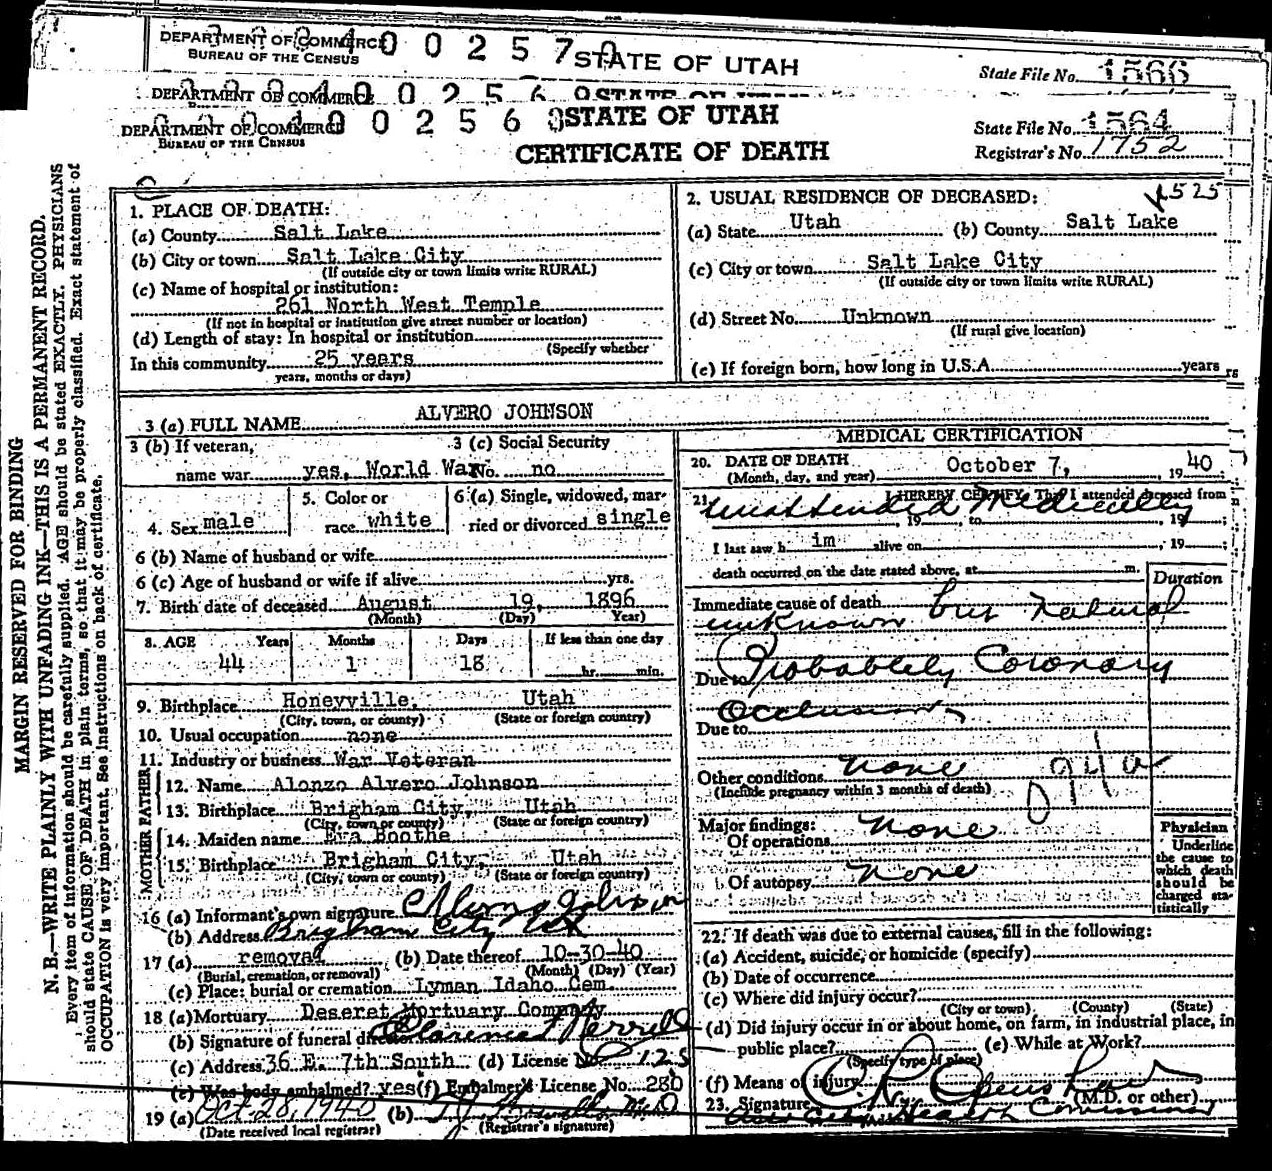 DEPARTMENT OF COMMERCE
BUREAU OF THE CENSUS
STATE OF UTAH
State File No. 1566
DEPARTMENT OF COMMERCE
STATE OF UTAH
DEPARTMENT OF COMMERCE
BUREAU OF THE CENSUS
STATE OF UTAH
CERTIFICATE OF DEATH
State File No. 1564
Registrar's No. 1752
MARGIN RESERVED FOR BINDING
N. B.—WRITE PLAINLY WITH UNFADING INK—THIS IS A PERMANENT RECORD.
Every item of information should be carefully supplied. AGE should be stated EXACTLY. PHYSICIANS
should state CAUSE OF DEATH in plain terms, so that it may be properly classified. Exact statement of
OCCUPATION is very important. See instructions on back of certificate.
1. PLACE OF DEATH:
(a) County Salt Lake
(b) City or town Salt Lake City
(If outside city or town limits write RURAL)
(c) Name of hospital or institution:
261 North West Temple
(If not in hospital or institution give street number or location)
(d) Length of stay: In hospital or institution
(Specify whether
In this community 25 years
years, months or days)
2. USUAL RESIDENCE OF DECEASED:
(a) State Utah (b) County Salt Lake
(c) City or town Salt Lake City
(If outside city or town limits write RURAL)
(d) Street No. Unknown
(If rural give location)
(e) If foreign born, how long in U.S.A. years
3 (a) FULL NAME ALVERO JOHNSON
3 (b) If veteran, 3 (c) Social Security
name war yes, World War No. no
4. Sex male 5. Color or race white 6 (a) Single, widowed, married or divorced single
6 (b) Name of husband or wife
6 (c) Age of husband or wife if alive yrs.
7. Birth date of deceased August 19, 1896
(Month) (Day) (Year)
8. AGE Years Months Days If less than one day
44 1 18 hr. min.
9. Birthplace Honeyville, Utah
(City, town, or county) (State or foreign country)
10. Usual occupation none
11. Industry or business War Veteran
FATHER
12. Name Alonzo Alvero Johnson
13. Birthplace Brigham City, Utah
(City, town or county) (State or foreign country)
MOTHER
14. Maiden name Eva Boothe
15. Birthplace Brigham City, Utah
(City, town or county) (State or foreign country)
16 (a) Informant's own signature Johnson
(b) Address Brigham City
17 (a) removal (b) Date thereof 10-30-40
(Burial, cremation, or removal) (Month) (Day) (Year)
(c) Place: burial or cremation Lyman Idaho Cem.
18 (a) Mortuary Deseret Mortuary Company
(b) Signature of funeral director Clarence Merrill
(c) Address 36 E. 7th South (d) License No. 125
(e) Was body embalmed? yes (f) Embalmer's License No. 280
19 (a) Oct 28, 1940 (b)
(Date received local registrar) (Registrar's signature)
MEDICAL CERTIFICATION
20. DATE OF DEATH October 7, 19 40
(Month, day, and year)
21. I HEREBY CERTIFY, That I attended deceased from
Unattended Medically
19 , to , 19 ;
I last saw h im alive on , 19 ;
death occurred on the date stated above, at m.
Duration
Immediate cause of death but natural
unknown
Due to Probablely Coronary
Occlusion
Due to
Other conditions none
(Include pregnancy within 3 months of death)
Major findings:
Of operations none
Of autopsy none
Physician
Underline
the cause to
which death
should be
charged sta-
tistically
22. If death was due to external causes, fill in the following:
(a) Accident, suicide, or homicide (specify)
(b) Date of occurrence
(c) Where did injury occur?
(City or town) (County) (State)
(d) Did injury occur in or about home, on farm, in industrial place, in
public place? (e) While at Work?
(Specify type of place)
(f) Means of injury
23. Signature (M.D. or other)